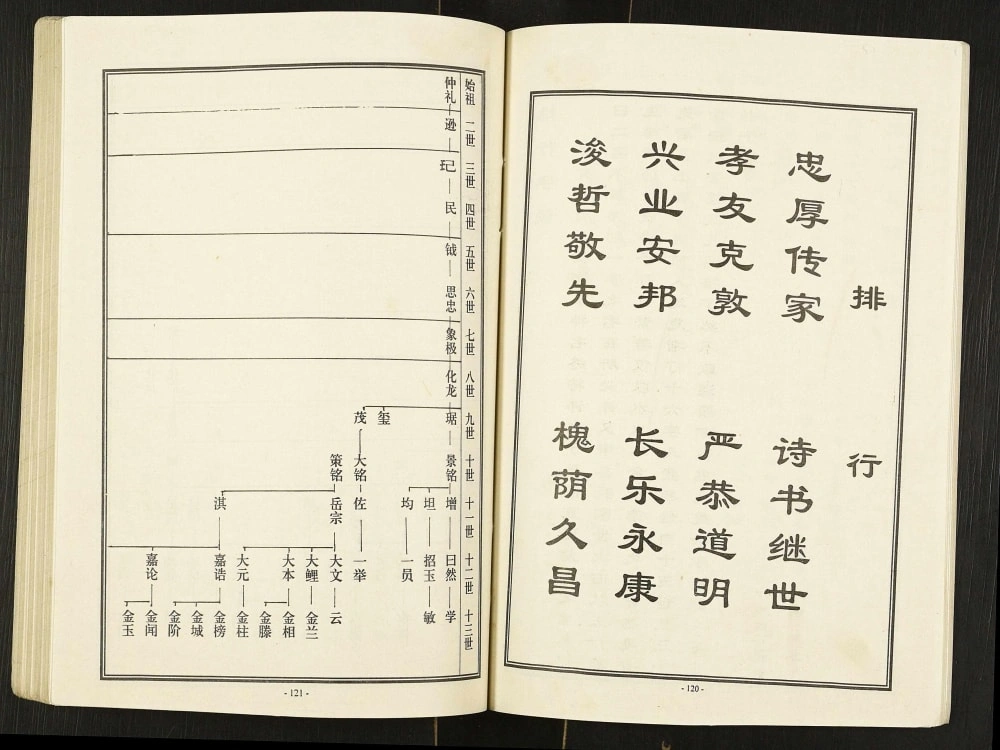 排行
忠厚传家 诗书继世
孝友克敦 严恭道明
兴业安邦 长乐永康
浚哲敬先 槐荫久昌
- 120 -
始祖 二世 三世 四世 五世 六世 七世 八世 九世 十世 十一世 十二世 十三世
仲礼 逊 玘 民 钺 思忠 象极 化龙 琚 景铭 增 曰然 学
坦 招玉 敏
均 一员
玺
茂 大铭 佐 一举
策铭 岳宗 大文 云
大鲤 金兰
大本 金相
金滕
大元 金柱
淇 嘉诰 金榜
金城
金阶
嘉论 金闻
金玉
- 121 -